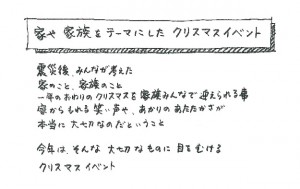 家や家族をテーマにした クリスマスイベント
震災後、みんなが考えた
家のこと、家族のこと
一年のおわりのクリスマスを家族みんなで迎えられる事
家からもれる笑い声や、あかりのあたたかさが
本当に大切なのだということ
今年は、そんな大切なものに目をむける
クリスマスイベント